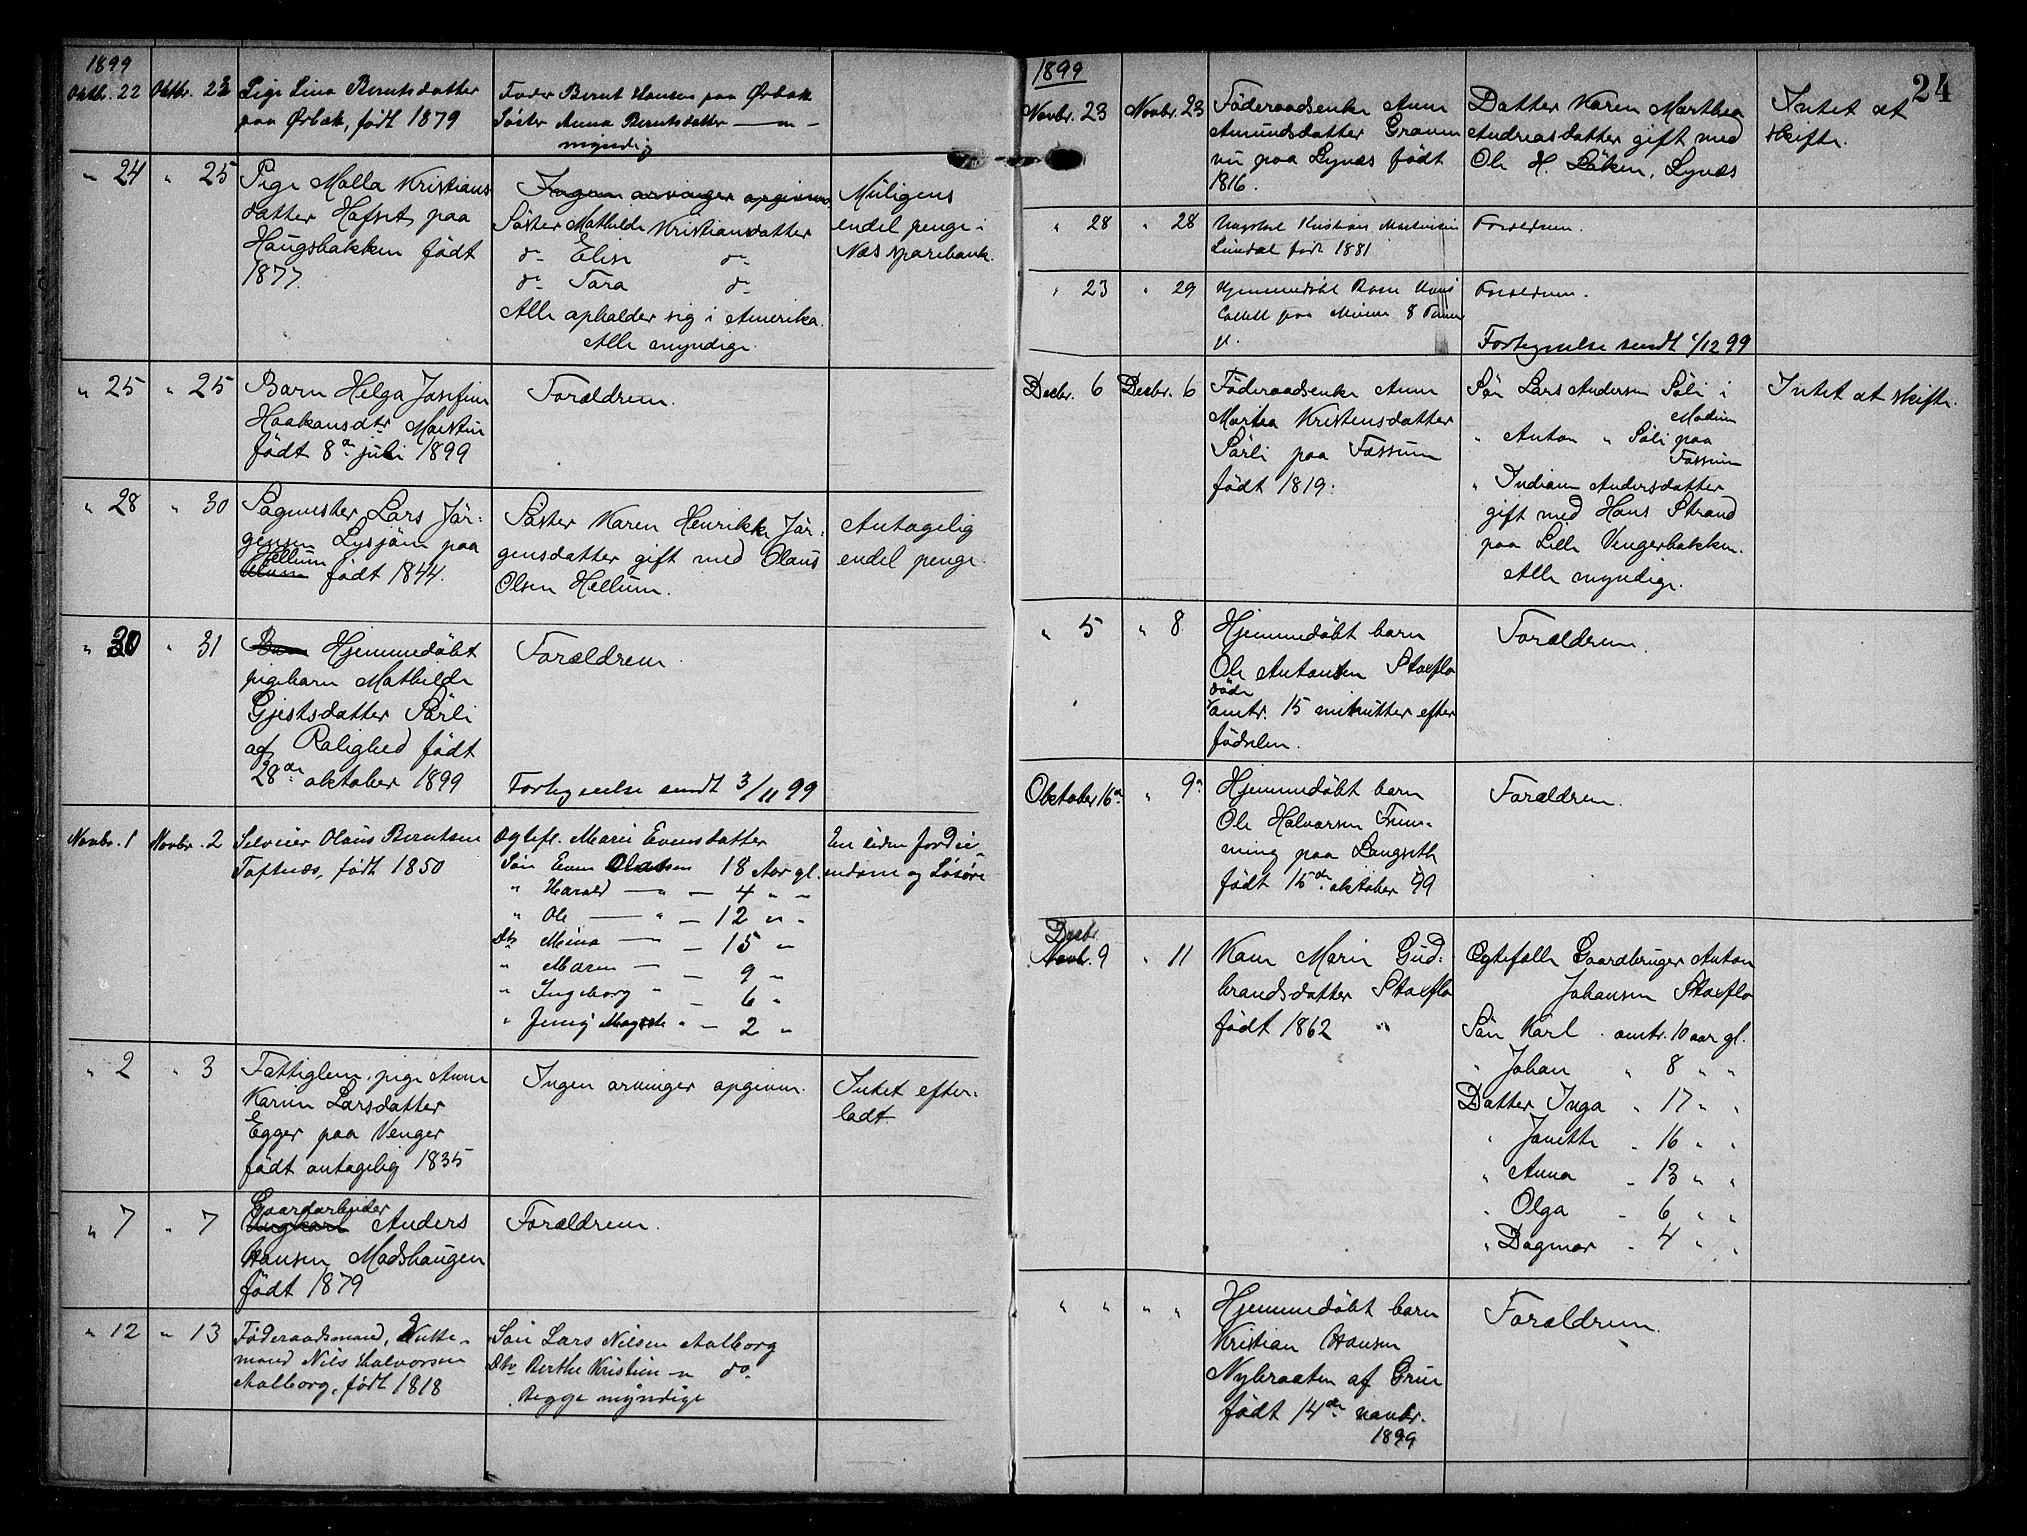 1899
Oktbr. 22 Oktbr. 23 Pige Lina Berntsdatter
paa Ørbæk, født 1879
Fader Bernt Hansen paa Ørbæk
Søster Anna Berntsdatter — " —
myndig
" 24 " 25 Pige Malla Kristians
datter Hofset, paa
Haugsbakken født
1877.
Ingen arvinger opgivens
Søster Mathilde Kristiansdatter
do Elise do
do Tora do
Alle opholder sig i Amerika.
Alle myndige.
Muligens
endel penge i
Næs sparebank.
" 25 " 25 Barn Helga Josefine
Haakonsdtr
født 8de juli 1899
Forældrene.
" 28 " 30 Sagmester Lars Jör-
gensen Lysjöen paa
Hellum
født 1844.
Søster Karen Henrikke Jör-
gensdatter gift med Olaus
Olsen Hellum.
Antagelig
endel penge.
" 30 " 31 Barn Hjemmedøbt
pigebarn Mathilde
Gjestsdatter Sörli
af Rolighed født
28de oktober 1899
Forældrene.
Fortegnelse sendt 3/11 99
Novbr. 1 Novbr. 2 Selveier Olaus Berntsen
Toftnæs, født 1850
Ægtef. Marie Evensdatter
Søn Even Olausen 18 Aar gl.
" Harald — " — 4 " "
" Ole — " — 12 " "
Dtr Mina — — 15 "
" Maren — — 9 "
" Ingeborg " — 6 "
" Jenny " — 2 "
En liden jordei-
endom og Løsøre
" 2 " 3 Fattiglem, pige Anne
Karen Larsdatter
Egger paa Venger
født antagelig 1835
Ingen arvinger opgiven.
Intet efter-
ladt.
" 7 " 7 Gaardarbeider
Ungkarl Anders
Hansen Madshaugen
født 1879
Forældrene.
" 12 " 13 Föderaadsmand, Enke-
mand Nils Halvorsen
Aalborg, født 1818
Søn Lars Nilsen Aalborg
Dtr Berthe Kristine " do.
Begge myndige
24
1899
Novbr. 23 Novbr. 23 Föderaadsenke Anne
Amundsdatter Gravem
nu paa Lynæs født
1816.
Datter Karen Marthea
Andreasdatter gift med
Ole H. Löken, Lynæs
Intet at
skifte.
" 28 " 28 Ungkarl Kristian
Lundal født 1881
Forældrene.
" 23 " 29 Hjemmedøbt Barn Hans
paa
Forældrene.
Fortegnelse sendt 1/12 99
Decbr. 6 Decbr. 6 Föderaadsenke Anne
Martea Kristensdatter
Sörli paa Fossum
født 1819.
Sön Lars Andersen Söli i
Modum
" Anton " Söli paa
Fossum
" Indiane Andersdatter
gift med Hans Strand
paa Lille Vengerbakken.
Alle myndige.
Intet at skifte.
" 5 " 8 Hjemmedøbt barn
Ole Antonsen Storflo
döde
omtr. 15 minutter efter
fødselen.
Forældrene.
Oktober 16de " 9de Hjemmedøbt barn
Ole Halvorsen
paa Langseth
født 15de oktober 99
Forældrene.
Decbr.
Novbr. 9 " 11 Kone Marie Gud-
brandsdatter Storflo
født 1862 "
Ægtefælle Gaardbruger Anton
Johansen Storflo
Sön Karl omtr. 10 aar gl.
" Johan " 8 " "
Datter Inga " 17 " "
" Janette " 16 " "
" Anna " 13 " "
" Olga " 6 " "
" Dagmar " 4 " "
" " " " Hjemmedøbt barn
Kristian Hansen
Nybraaten af Grue
født 14de novbr.
1899
Forældrene.